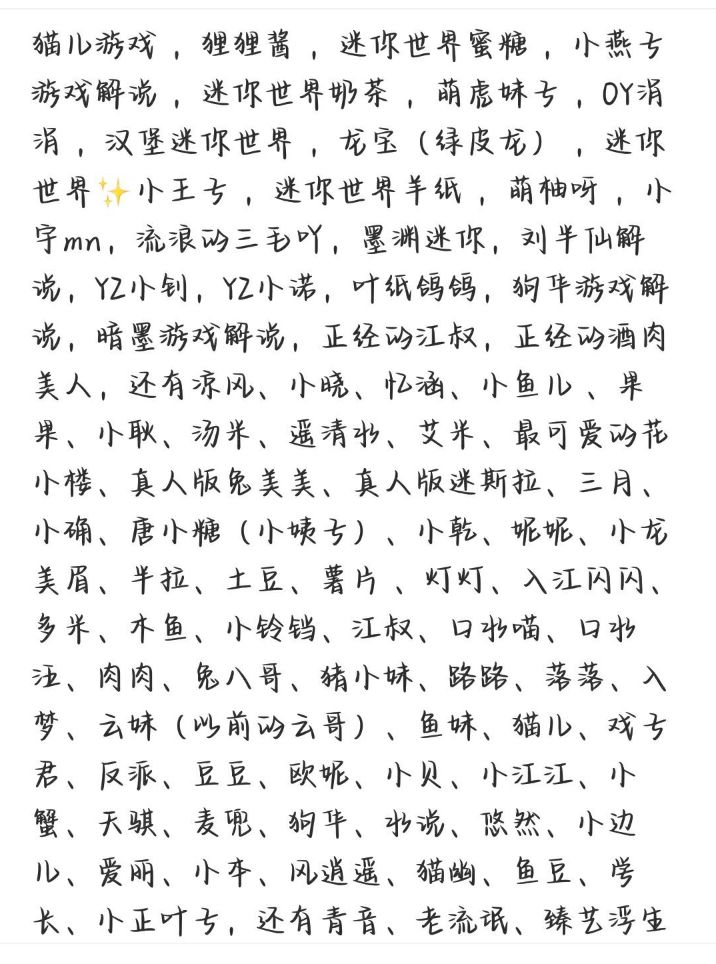 猫儿游戏，狸狸酱，迷你世界蜜糖，小燕子
游戏解说，迷你世界奶茶，萌虎妹子，OY涓
涓，汉堡迷你世界，龙宝（绿皮龙），迷你
世界✨小王子，迷你世界羊纸，萌柚呀，小
宇mn，流浪的三毛吖，墨渊迷你，刘半仙解
说，YZ小钊，YZ小诺，叶纸鸽鸽，狗华游戏解
说，暗墨游戏解说，正经的江叔，正经的酒肉
美人，还有凉风、小晓、忆涵、小鱼儿、果
果、小耿、汤米、遥清水、艾米、最可爱的花
小楼、真人版兔美美、真人版迷斯拉、三月、
小确、唐小糖（小姨子）、小乾、妮妮、小龙
美眉、半拉、土豆、薯片、灯灯、入江闪闪、
多米、木鱼、小铃铛、江叔、口水喵、口水
汪、肉肉、兔八哥、猪小妹、路路、落落、入
梦、云妹（以前的云哥）、鱼妹、猫儿、戏子
君、反派、豆豆、欧妮、小贝、小江江、小
蟹、天骐、麦兜、狗华、水说、悠然、小边
儿、爱丽、小本、风逍遥、猫幽、鱼豆、学
长、小正叶子，还有青音、老流氓、臻艺浮生